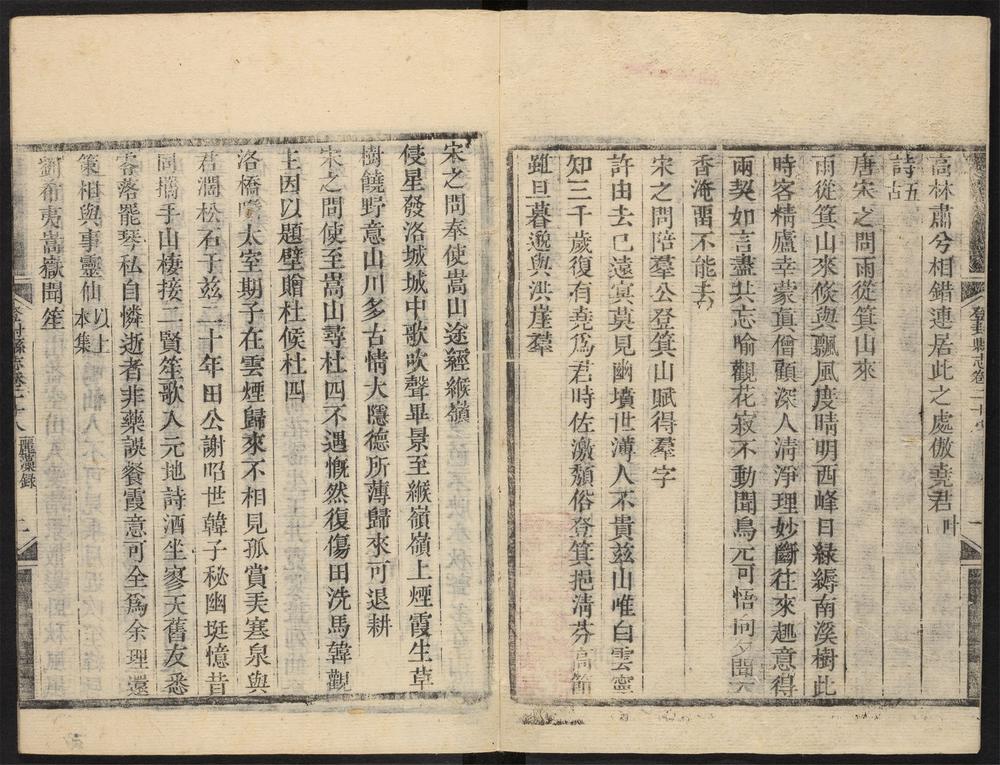 高林肅兮相錯連居此之處傲堯君叶
詩五古
唐宋之問雨從箕山來
雨從箕山來倏與飄風度晴明西峰日綠縟南溪樹此
時客精廬幸蒙眞僧顧深人清淨理妙斷往來趣意得
兩契如言盡共忘喻觀花寂不動聞鳥元可悟向夕聞天
香淹留不能去
宋之問陪羣公登箕山賦得羣字
許由去已遠冥莫見幽墳世薄人不貴兹山唯白雲寧
知三千歲復有堯爲君時佐激頹俗登箕挹清芬高節
雖旦暮邈與洪崖羣
登封縣志卷二十八
一
宋之問奉使嵩山途經緱嶺
侵星發洛城城中歌吹聲畢景至緱嶺嶺上煙霞生草
樹饒野意山川多古情大隱德所薄歸來可退耕
宋之問使至嵩山尋杜四不遇慨然復傷田洗馬韓觀
主因以題壁贈杜候杜四
洛橋瞻太室期子在雲煙歸來不相見孤賞弄寒泉與
君澗松石于兹二十年田公謝昭世韓子秘幽埏憶昔
同攜手山棲接二賢笙歌人元地詩酒坐寥天舊友悉
零落罷琴私自憐逝者非藥誤餐霞意可全爲余理還
策相與事靈仙以上本集
劉希夷嵩嶽聞笙
登封縣志卷二十八 麗藻錄
二